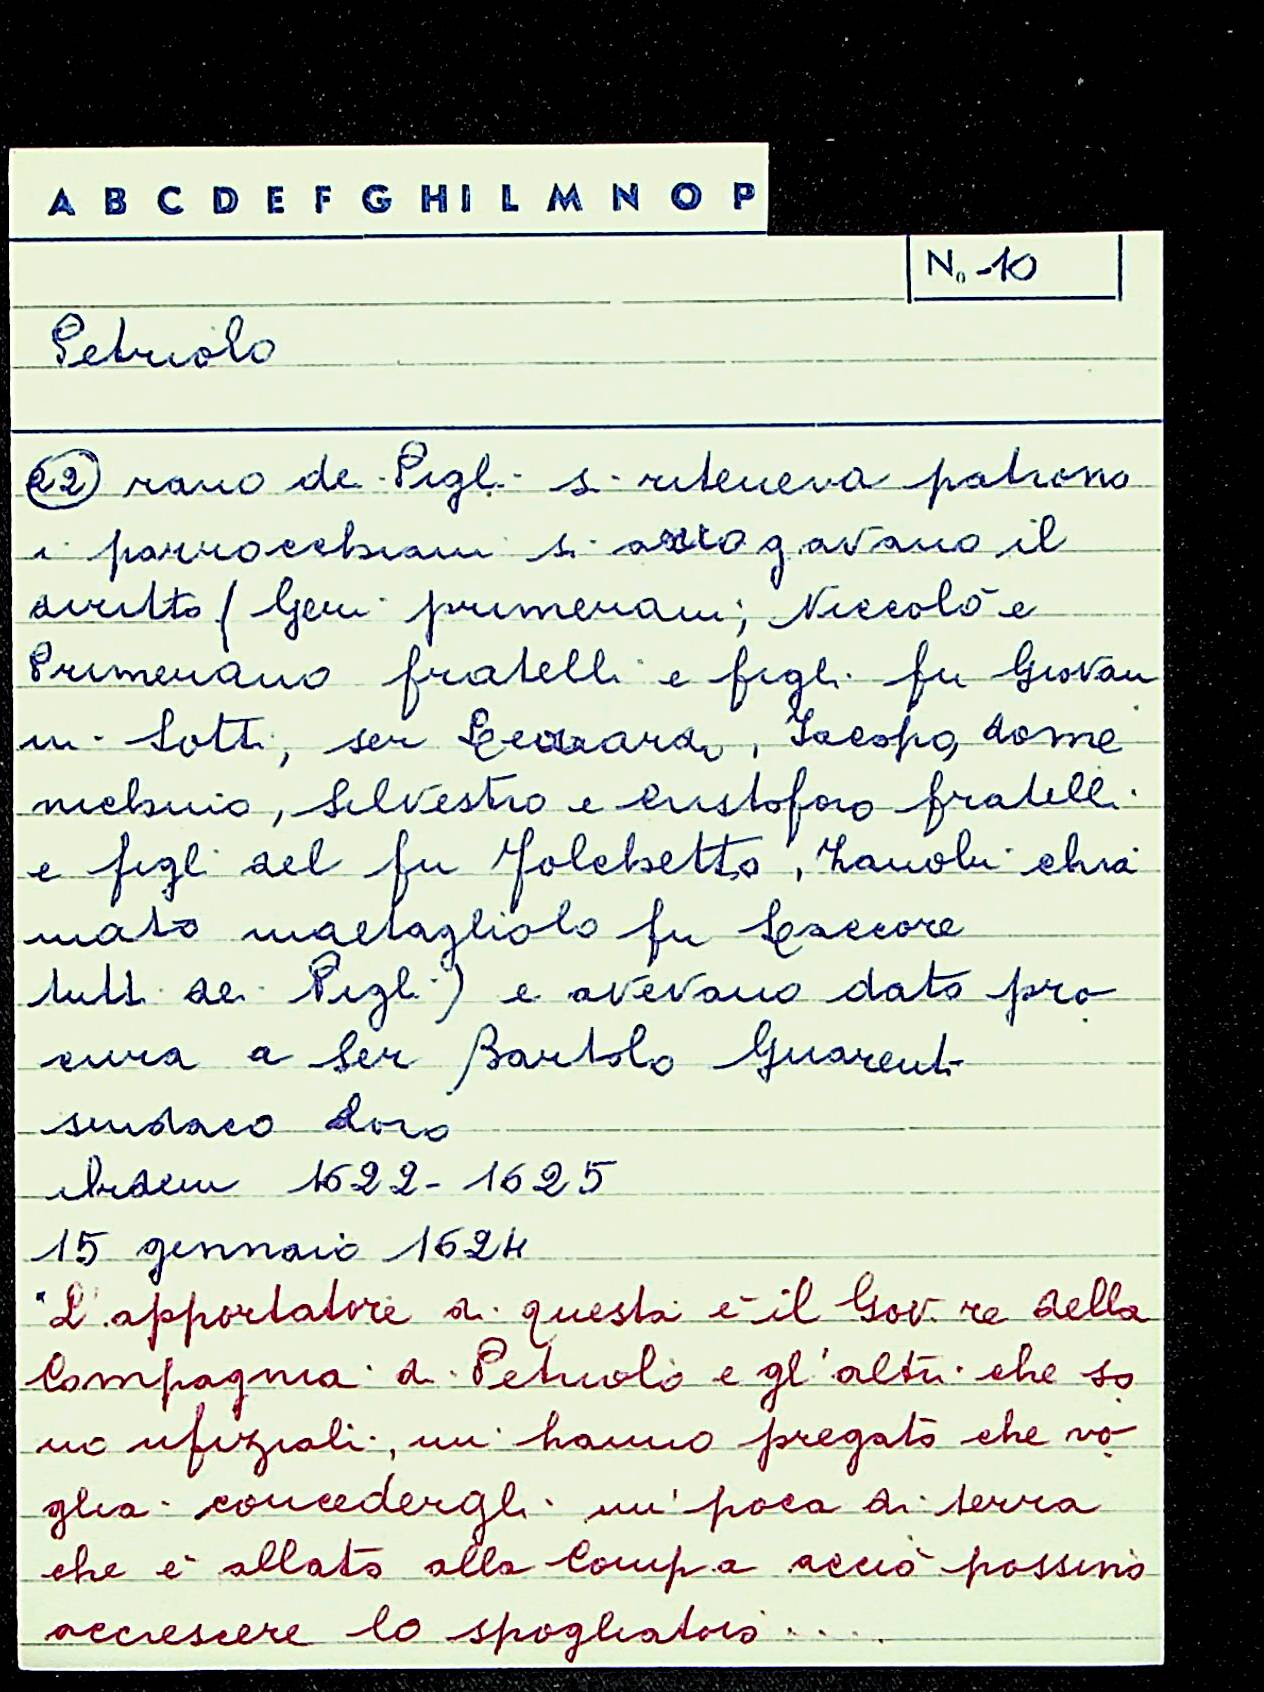 A B C D E F G H I L M N O P
N. 10
Petriolo
22 rano de Pigli si riteneva patrono
i parrocchiani si arrogavano il
diritto ( Geri primerani; Niccolò e
Primerano fratelli e figli fu Giovan
ni Lotti, ser Leonardo, Iacopo, dome
nichino, Silvestro e Cristoforo fratelli
e figli del fu Folchetto, Zanobi chia
mato fu
tutti dei Pigli) e avevano dato pro
cura a Ser Bartolo Guarenti
sindaco loro
ibidem 1622-1625
15 gennaio 1624
"L'apportatore di questa è il Gov.re della
Compagnia di Petriolo e gl'altri che so
no ufiziali, mi hanno pregato che vo
glia concedergli un' poca di terra
che è allato alla Comp.a acciò possino
accrescere lo spogliatoio ....